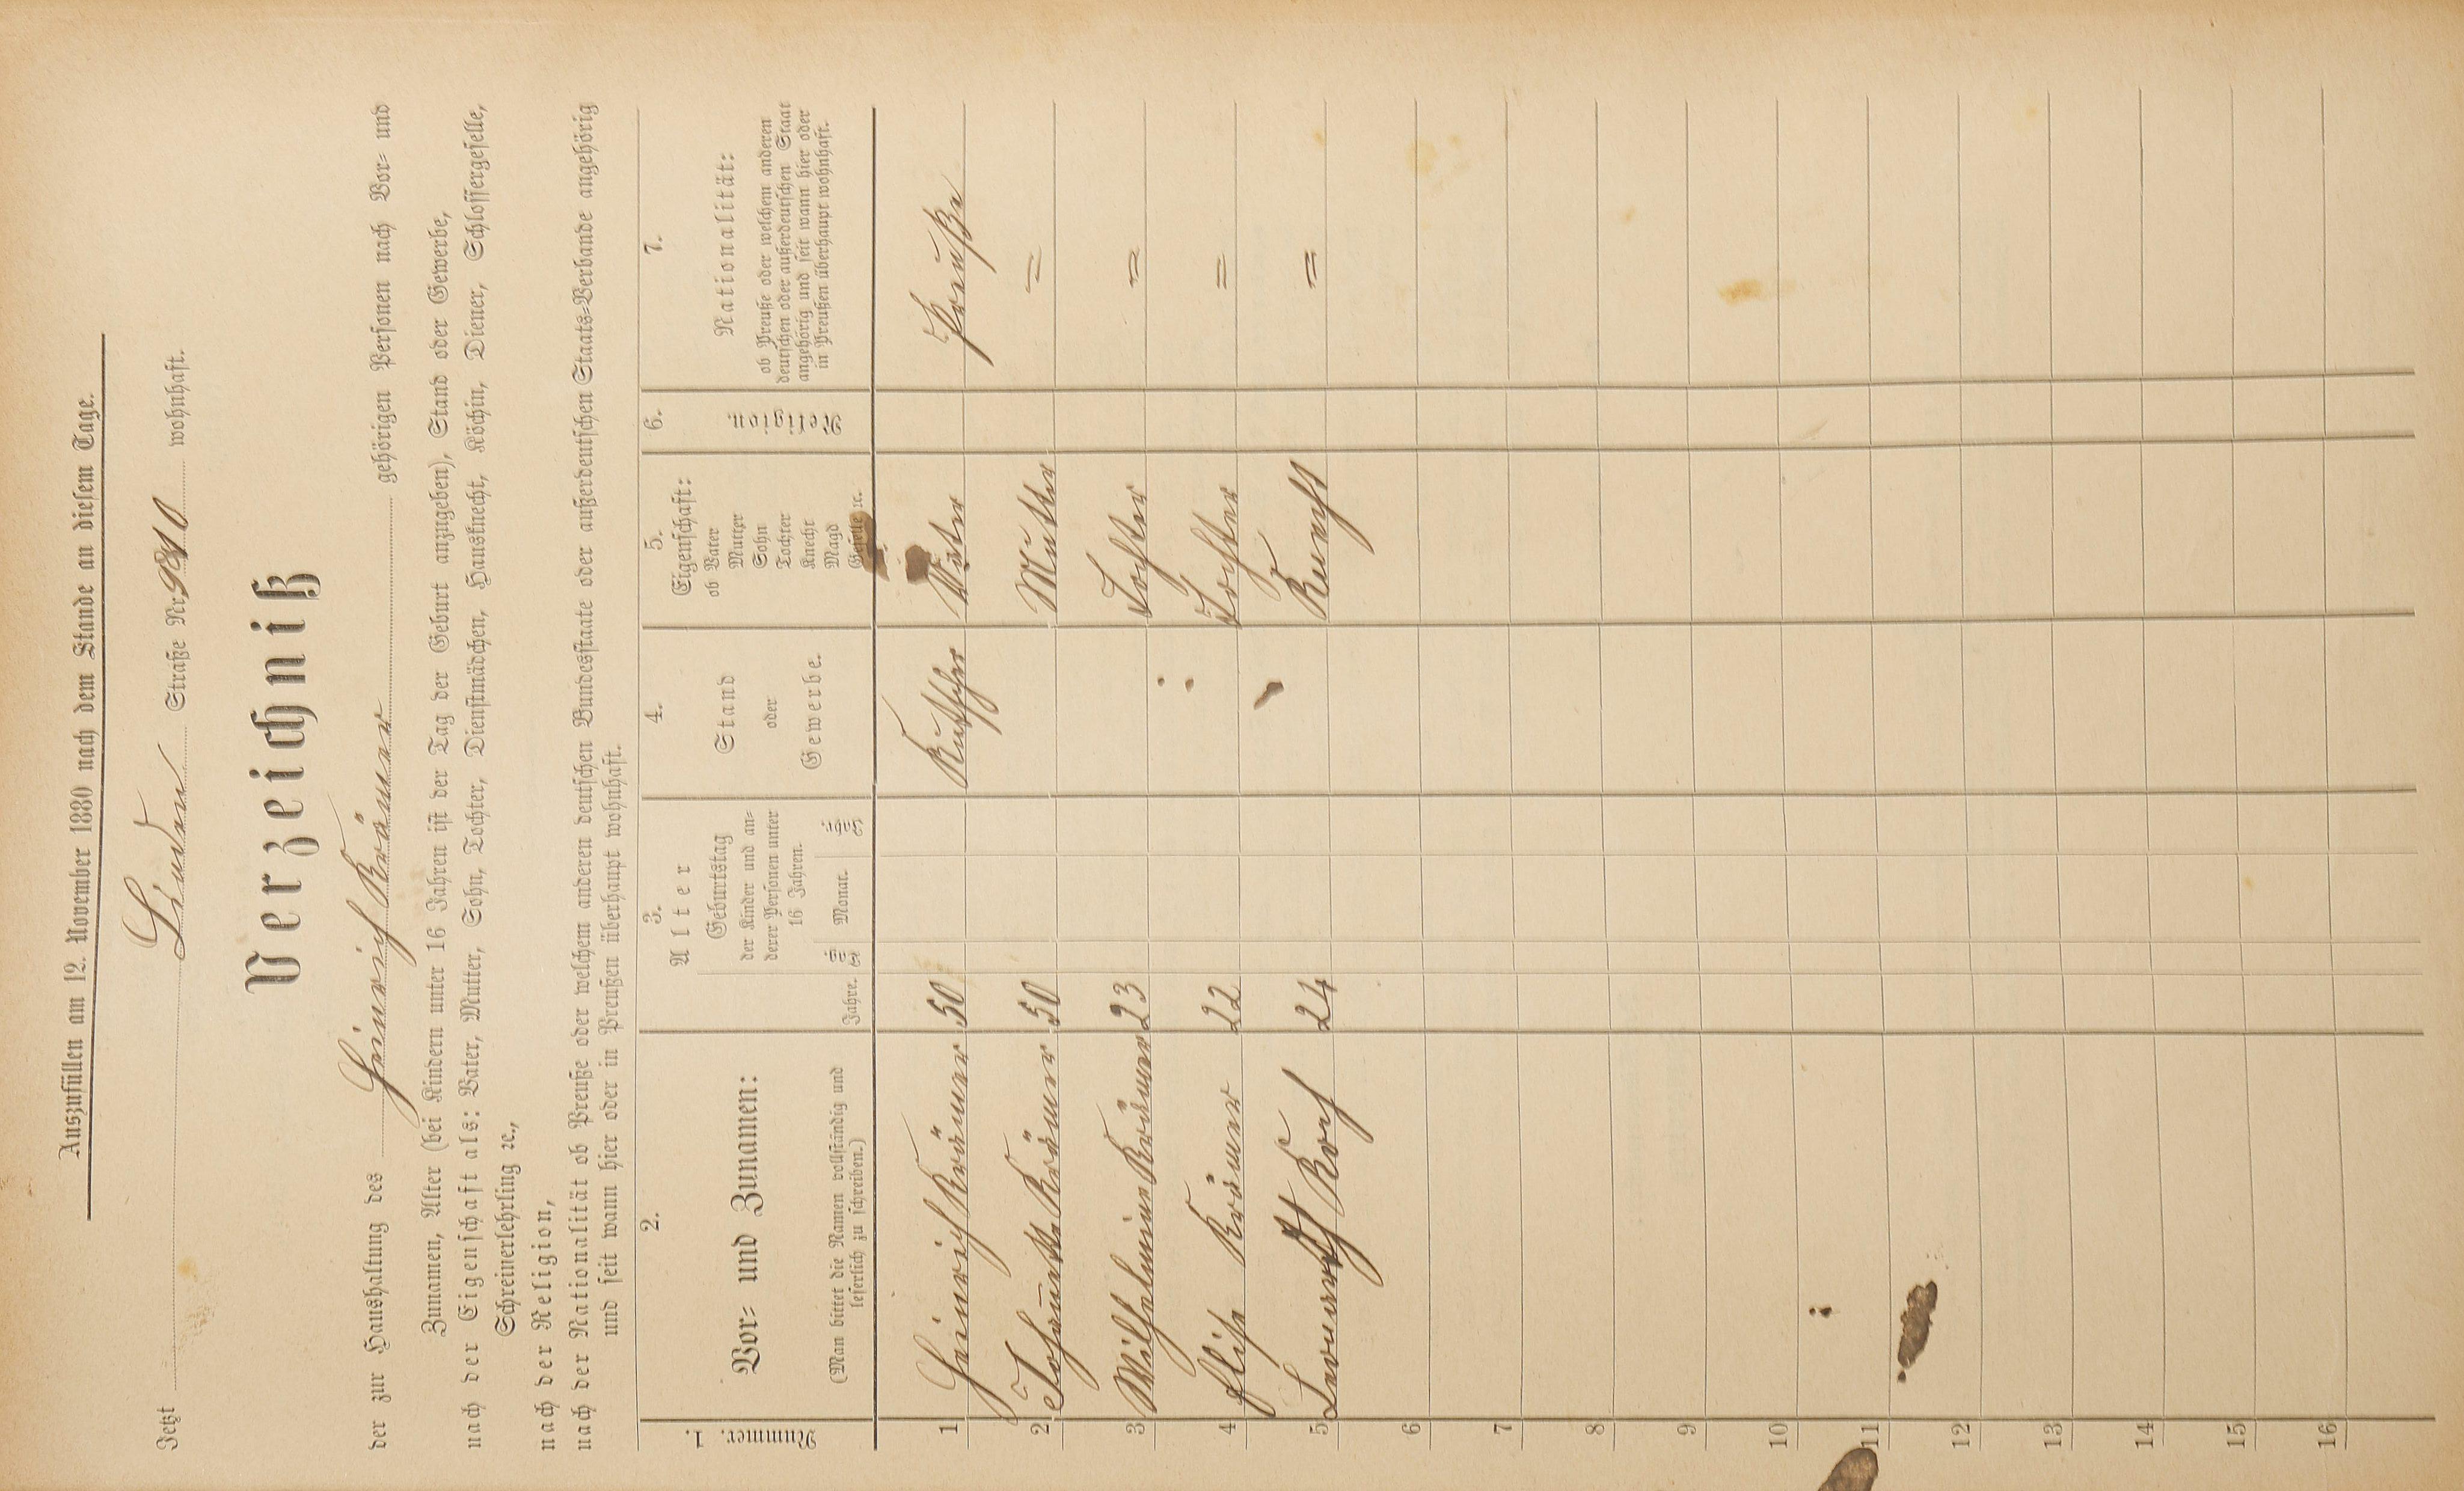 Auszufüllen am 12. November 1880 nach dem Stande an diesem Tage.
Jetzt Linden Straße Nr. wohnhaft.
Verzeichniß
der zur Haushaltung des Heinrich Krämer gehörigen Personen nach Vor- und
Zunamen, Alter (bei Kindern unter 16 Jahren ist der Tag der Geburt anzugeben), Stand oder Gewerbe,
nach der Eigenschaft als: Vater, Mutter, Sohn, Tochter, Dienstmädchen, Hausknecht, Köchin, Diener, Schlossergeselle,
Schreinerlehrling ꝛc.,
nach der Religion,
nach der Nationalität ob Preuße oder welchem anderen deutschen Bundesstaate oder außerdeutschen Staats-Verbande angehörig
und seit wann hier oder in Preußen überhaupt wohnhaft.
Nummer. 1.
2.
Vor- und Zunamen:
(Man bittet die Namen vollständig und
leserlich zu schreiben.)
3.
Alter
Jahre.
Geburtstag
der Kinder und an-
derer Personen unter
16 Jahren.
Tag Monat. Jahr.
4.
Stand
oder
Gewerbe.
5.
Eigenschaft:
ob Vater
Mutter
Sohn
Tochter
Knecht
Magd
Geselle ꝛc.
6.
Religion.
7.
Nationalität:
ob Preuße oder welchem anderen
deutschen oder außerdeutschen Staat
angehörig und seit wann hier oder
in Preußen überhaupt wohnhaft.
1 Heinrich Krämer 50 Kutscher Vater Preuße
2 Johanette Krämer 50 Mutter =
3 Wilhelmine Krämer 23 Tochter =
4 Elise Krämer 22 Tochter =
5 Koch 24 Knecht =
6
7
8
9
10
11
12
13
14
15
16